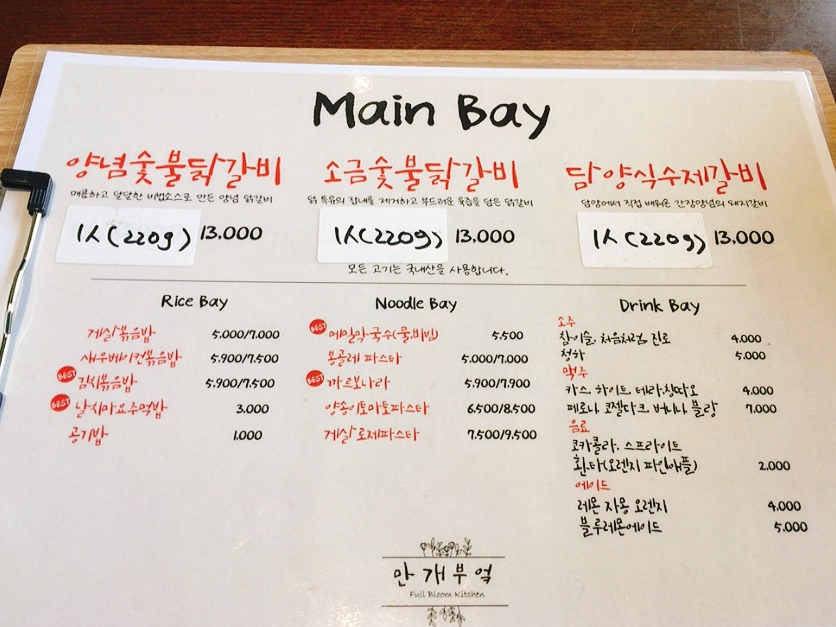 Main Bay
양념숯불닭갈비
매콤하고 달달한 비법소스로 만든 양념 닭갈비
1人(220g) 13,000
소금숯불닭갈비
닭 특유의 잡내를 제거하고 부드러운 육즙을 담은 닭갈비
1人(220g) 13,000
담양식수제갈비
담양에서 직접 배워온 간장양념의 돼지갈비
1人(220g) 13,000
모든 고기는 국내산을 사용합니다.
Rice Bay
게살볶음밥 5.000/7.000
새우베이컨볶음밥 5.900/7,500
BEST 김치볶음밥 5,900/7,500
BEST 날치마요주먹밥 3.000
공기밥 1.000
Noodle Bay
BEST 메밀막국수(물,비빔) 5.500
봉골레 파스타 5,000/7,000
BEST 까르보나라 5,900/7,900
양송이토마토파스타 6.500/8.500
게살로제파스타 7.500/9,500
Drink Bay
소주
참이슬, 처음처럼, 진로 4.000
청하 5.000
맥주
카스, 하이트, 테라, 칭따오 4.000
페로니 코젤다크 버니니 블랑 7,000
음료
코카콜라, 스프라이트
환타(오렌지 파인애플) 2.000
에이드
레몬 자몽 오렌지 4.000
블루레몬에이드 5.000
만개부엌
Full Bloom Kitchen